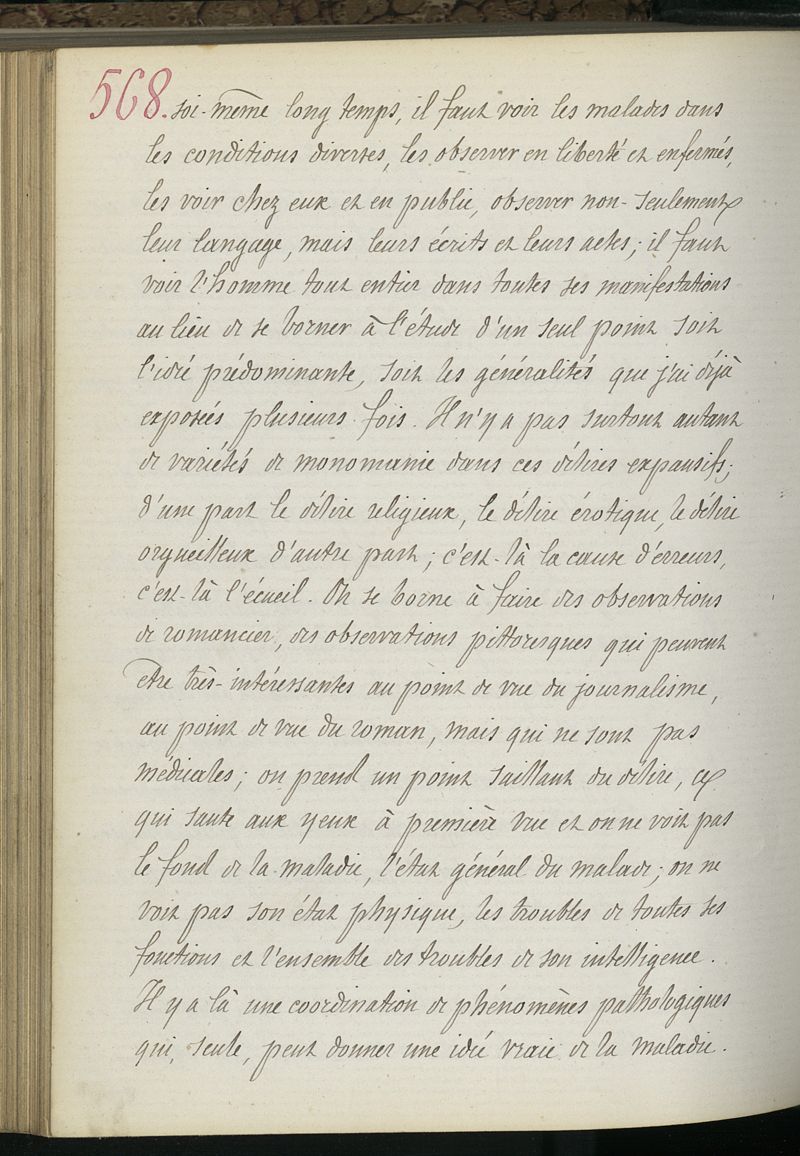 568. soi-même long temps, il faut voir les malades dans
les conditions diverses, les observer en liberté et enfermés,
les voir chez eux et en public, observer non-seulement
leur langage, mais leurs écrits et leurs actes; il faut
voir l'homme tout entier dans toutes ses manifestations
au lieu de se borner à l'étude d'un seul point soit
l'idée prédominante, soit les généralités que j'ai déjà
exposées plusieurs fois. Il n'y a pas surtout autant
de variétés de monomanie dans ces délires expansifs;
d'une part le délire religieux, le délire érotique, le délire
orgueilleux d'autre part; c'est-là la cause d'erreurs,
c'est-là l'écueil. On se borne à faire des observations
de romancier, des observations pittoresques qui peuvent
etre très-intéressantes au point de vue du journalisme,
au point de vue du roman, mais qui ne sont pas
médicales; on prend un point saillant du délire, ce
qui saute aux yeux à première vue et on ne voit pas
le fond de la maladie, l'état général du malade; on ne
voit pas son état physique, les troubles de toutes ses
fonctions et l'ensemble des troubles de son intelligence.
Il y a là une coordination de phénomènes pathologiques
qui, seule, peut donner une idée vraie de la maladie.